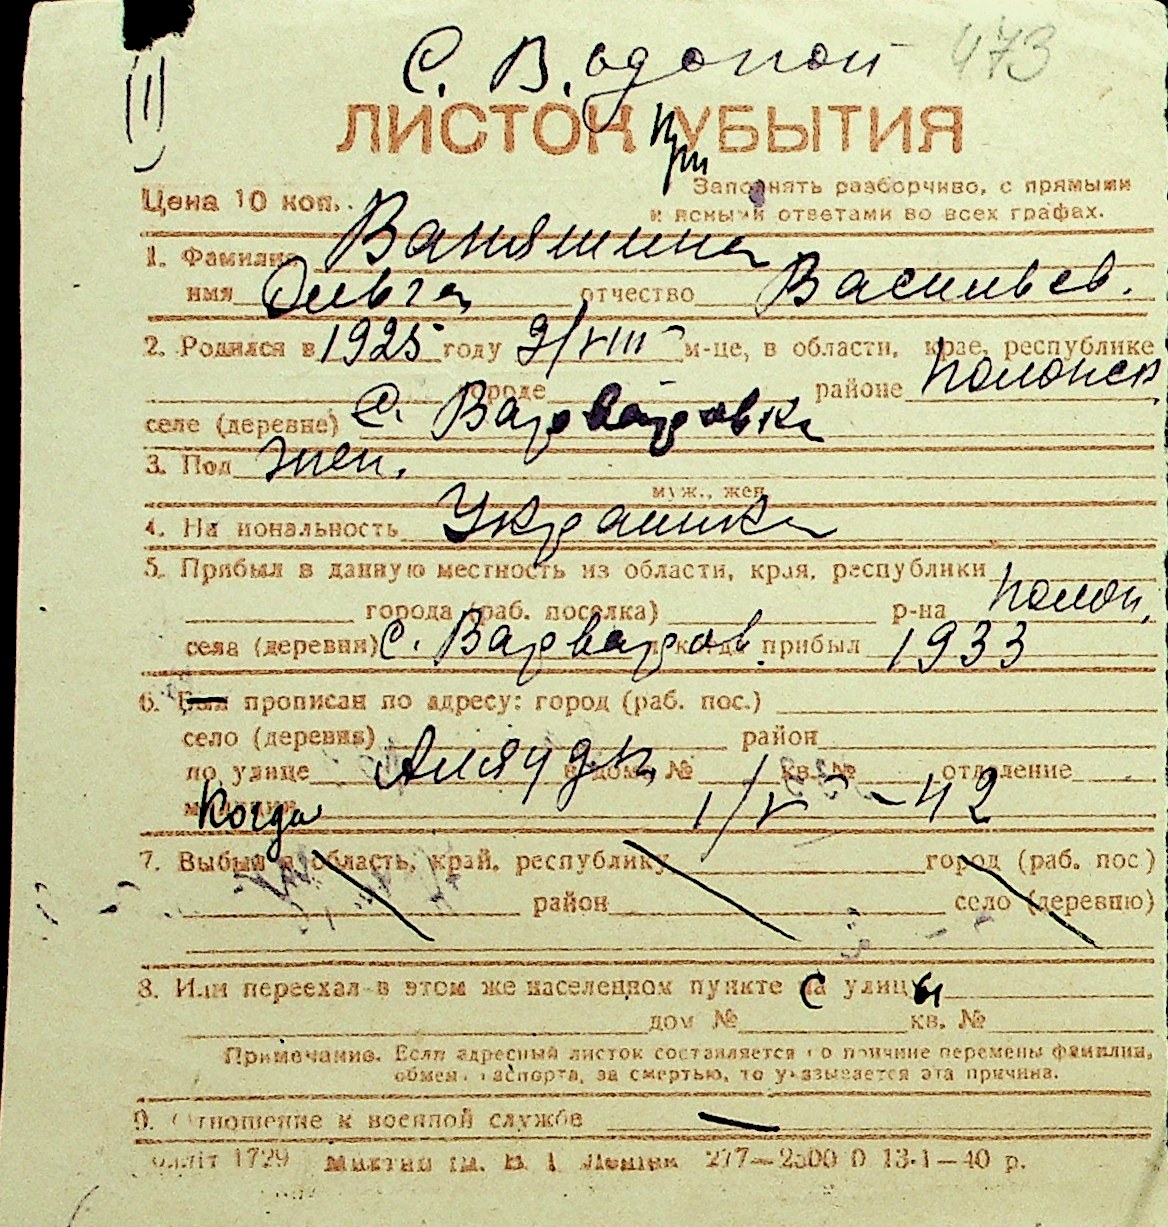 С. Водопой 473
ЛИСТОК УБЫТИЯ
при
Цена 10 коп.
Заполнять разборчиво, с прямыми
и ясными ответами во всех графах.
1. Фамилия Ваняшина
имя Ольга отчество Васильев.
2. Родился в 1925 году 9/VIII м-це, в области, крае, республике
городе районе Полонск
селе (деревне) С. Варваровка
3. Пол жен.
муж., жен.
4. Национальность Украинка
5. Прибыл в данную местность из области, края, республики
города (раб. поселка) р-на Полон.
села (деревни) С. Варваров. и когда прибыл 1933
6. Был прописан по адресу: город (раб. пос.)
село (деревня) район
по улице в дом № кв. № отделение
милиции Когда 1/V - 42
7. Выбыл в область, край, республику город (раб. пос)
район село (деревню)
8. Или переехал в этом же населенном пункте с улицы
дом № кв. №
Примечание. Если адресный листок составляется по причине перемены фамилии,
обмена паспорта, за смертью, то указывается эта причина.
9. Отношение к военной службе —
1729 277—2500 0 13.1—40 р.